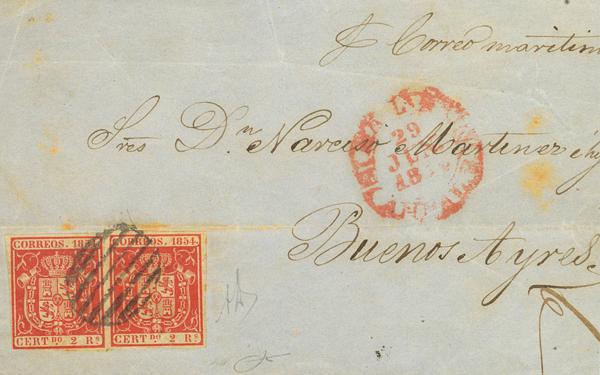 Correo maritim
Sres Dn Narciso Martinez é hij
Buenos Ayres
29
JUL
18
CORREOS. 185
CORREOS. 1854.
CERTDO 2 RS
CERTDO 2 RS